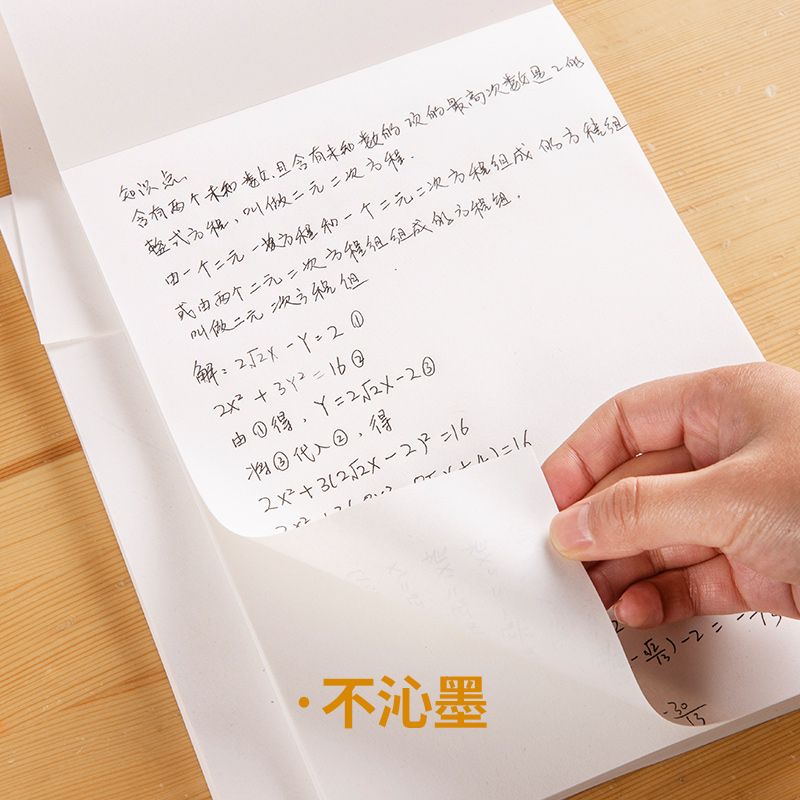 知识点
含有两个未知数,且含有未知数的项的最高次数是2的
整式方程,叫做二元二次方程.
由一个二元一次方程和一个二元二次方程组成的方程组
或由两个二元二次方程组组成的方程组.
叫做二元二次方程组
解:2√2x-Y=2①
2x²+3Y²=16②
由①得,Y=2√2x-2③
将③代入②,得
2x²+3(2√2x-2)²=16
·不沁墨